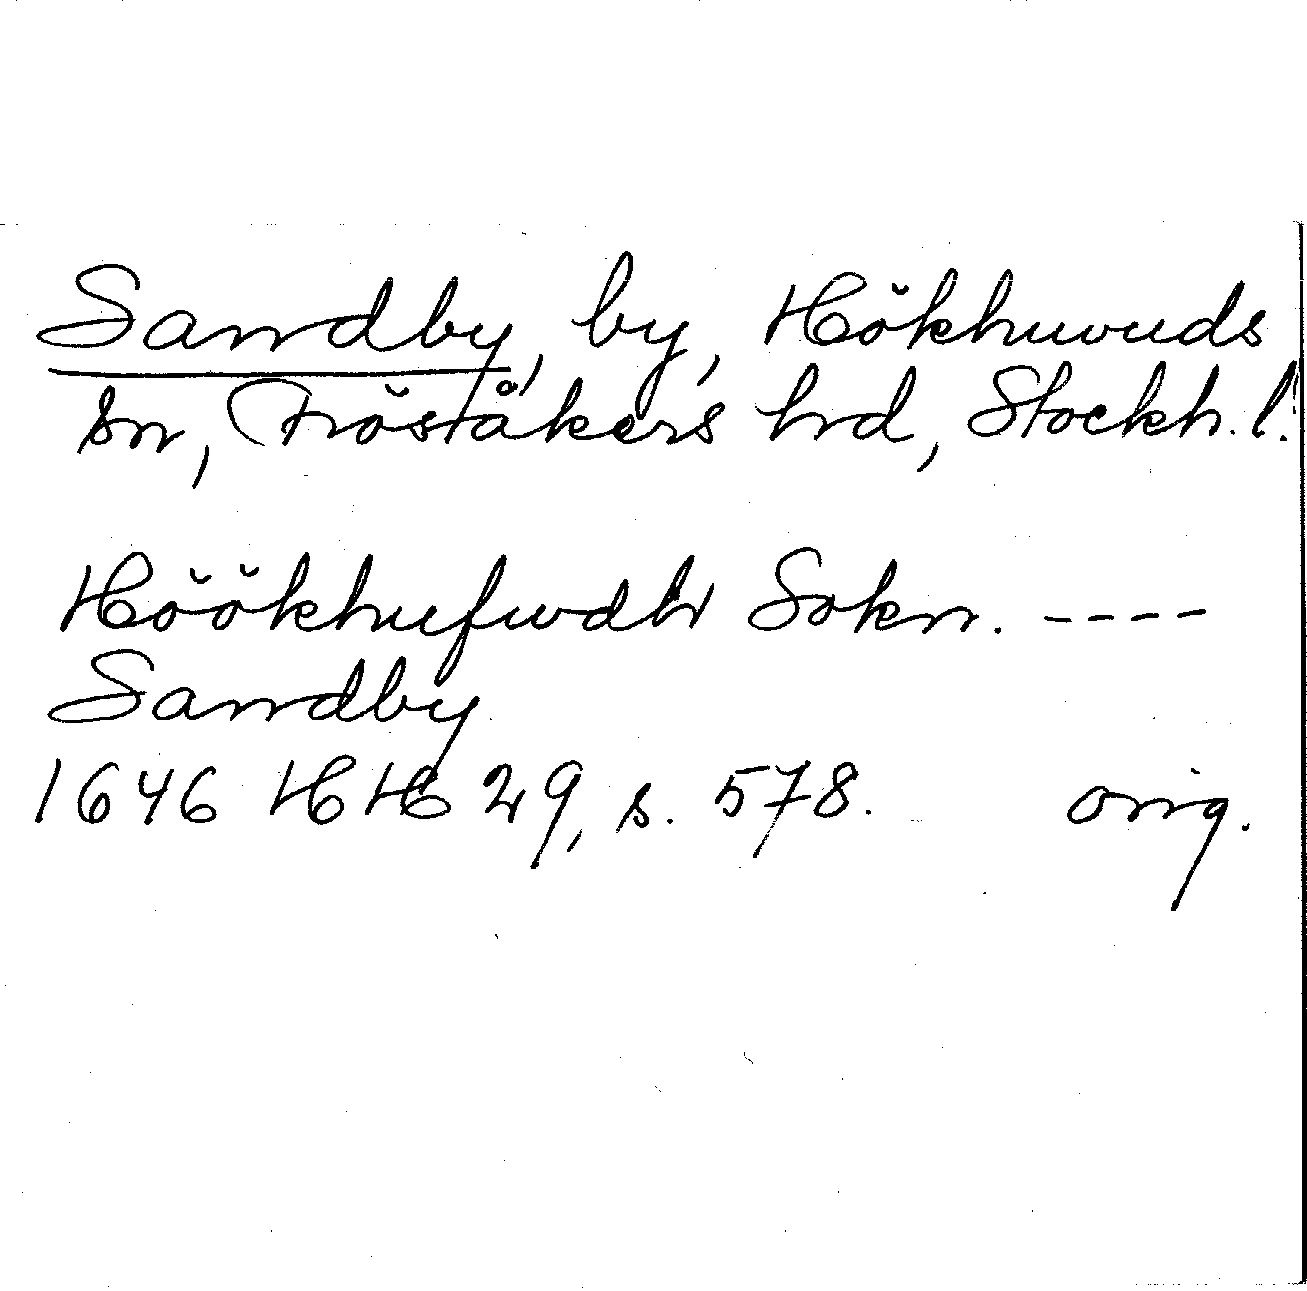 Sandby, by, Hökhuvuds
sn, Fröståkers hrd, Stockh. l.
Höökhufwdh Sokn. ----
Sandby
1646 HH 29, s. 578. orig.